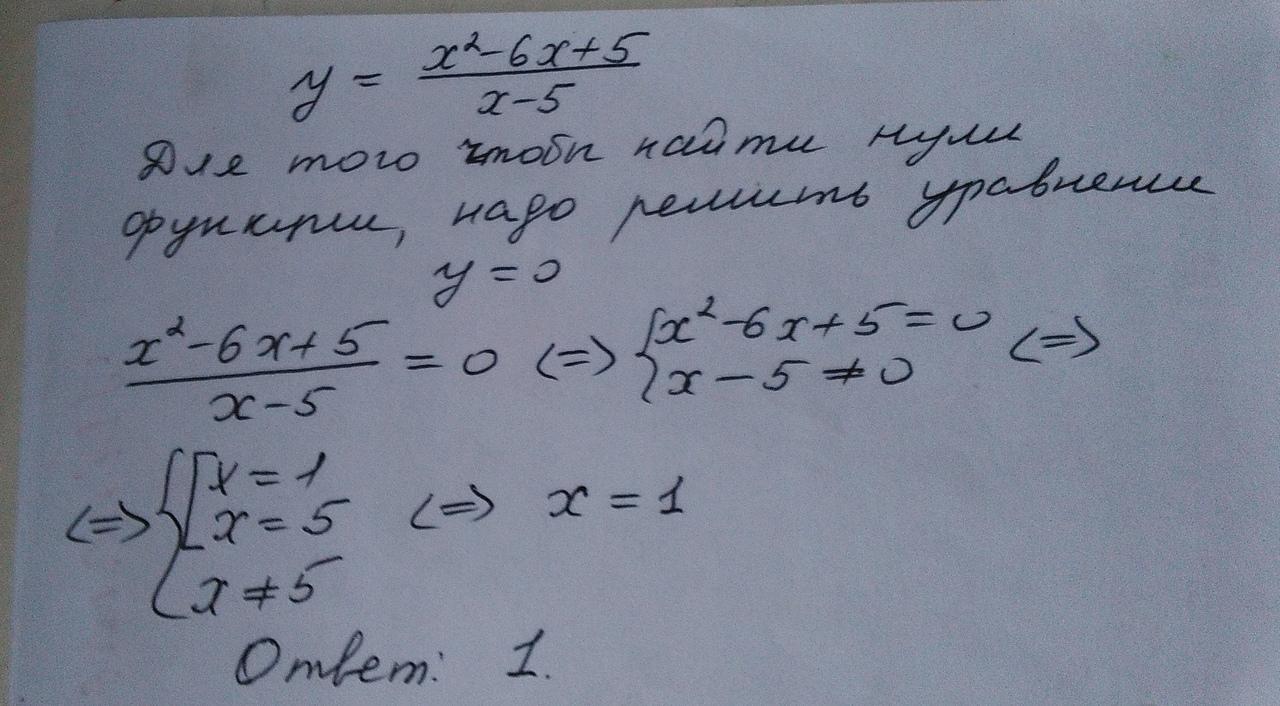 y = x²-6x+5 / x-5
Для того чтобы найти нули
функции, надо решить уравнение
y = 0
x²-6x+5 / x-5 = 0 <=> { x²-6x+5=0 x-5≠0 <=>
<=> { [ x=1 x=5 x≠5 <=> x = 1
Ответ: 1.